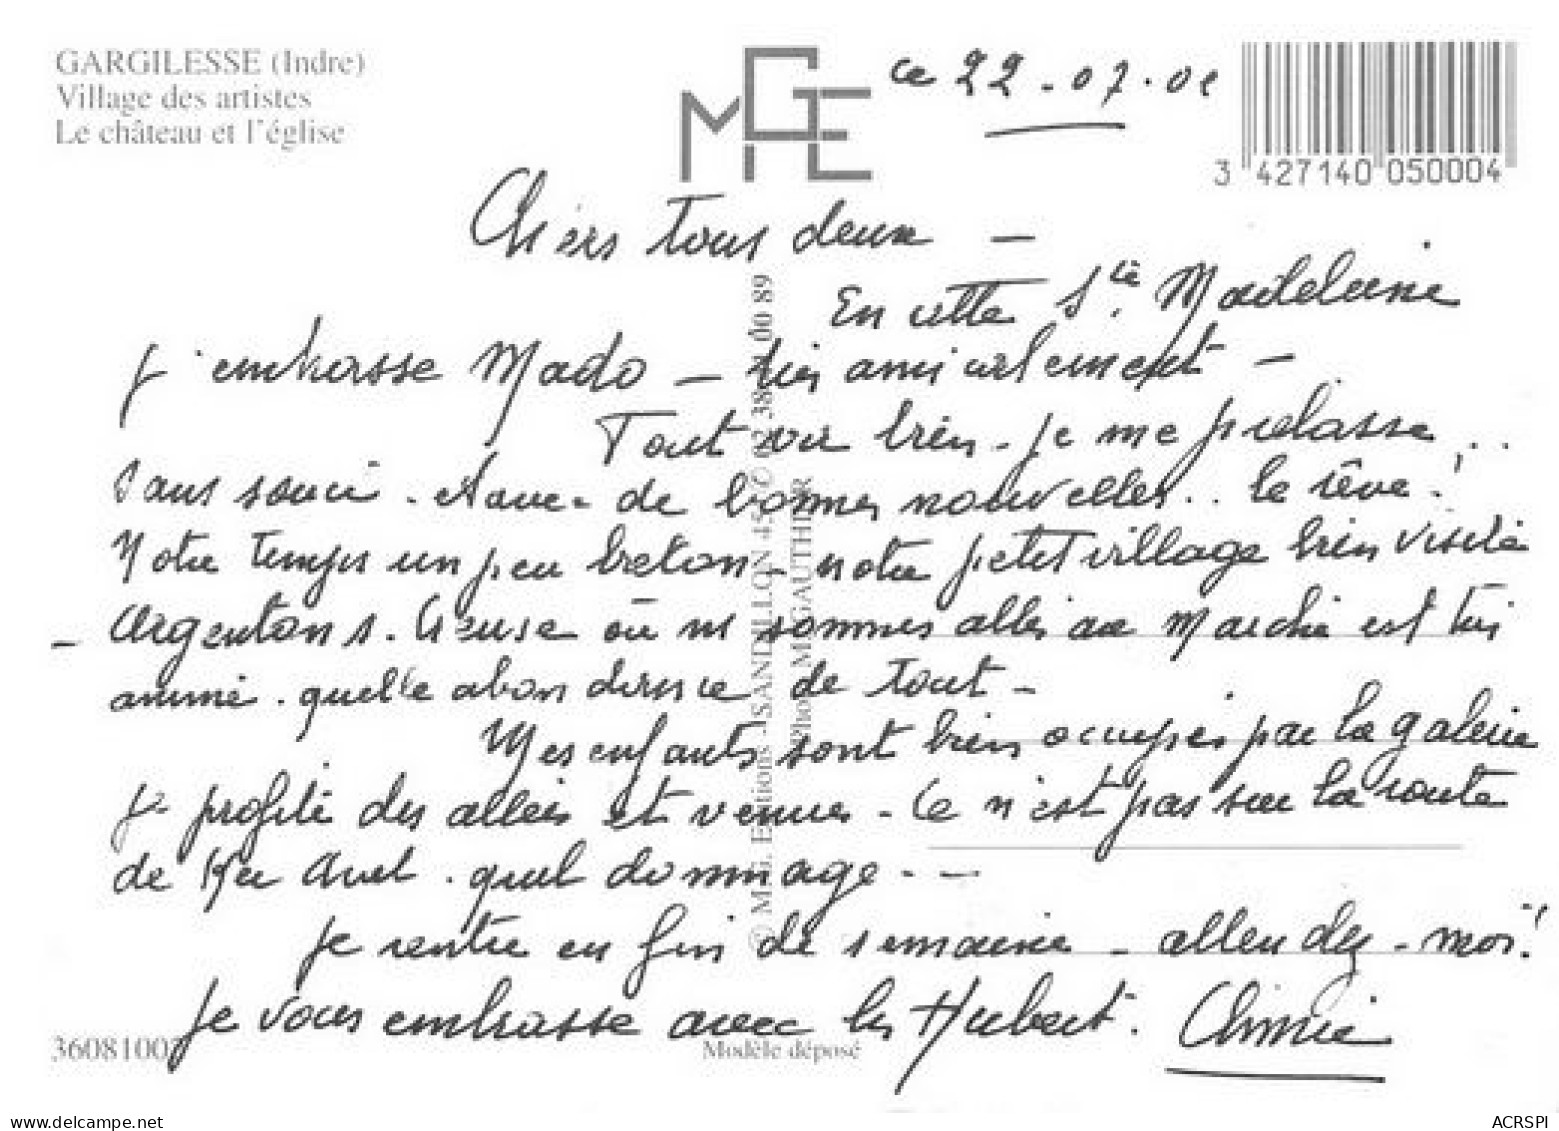 GARGILESSE (Indre)
Village des artistes
Le château et l'église
MGE
ce 22.07.01
3 427140 050004
Chers tous deux –
En cette Ste Madeleine
j'embrasse Mado – très amicalement –
Tout va bien – je me prélasse ..
sans souci. de bonnes nouvelles .. le rêve!
Notre temps un peu breton – notre petit village bien visité
– Argenton s. Creuse où ns sommes allés au Marché est très
animé. quelle abondance de tout –
Mes enfants sont bien occupés par la galerie
je profite des allées et venues – Ce n'est pas sur la route
de quel dommage - –
Je rentre en fin de semaine – attendez-moi!
Je vous embrasse avec les Hubert.
© M.G. Editions - SANDILLON 45 - © 02 38 00 89
Photo M. GAUTHIER
36081003
Modèle déposé
ACRSPI
www.delcampe.net